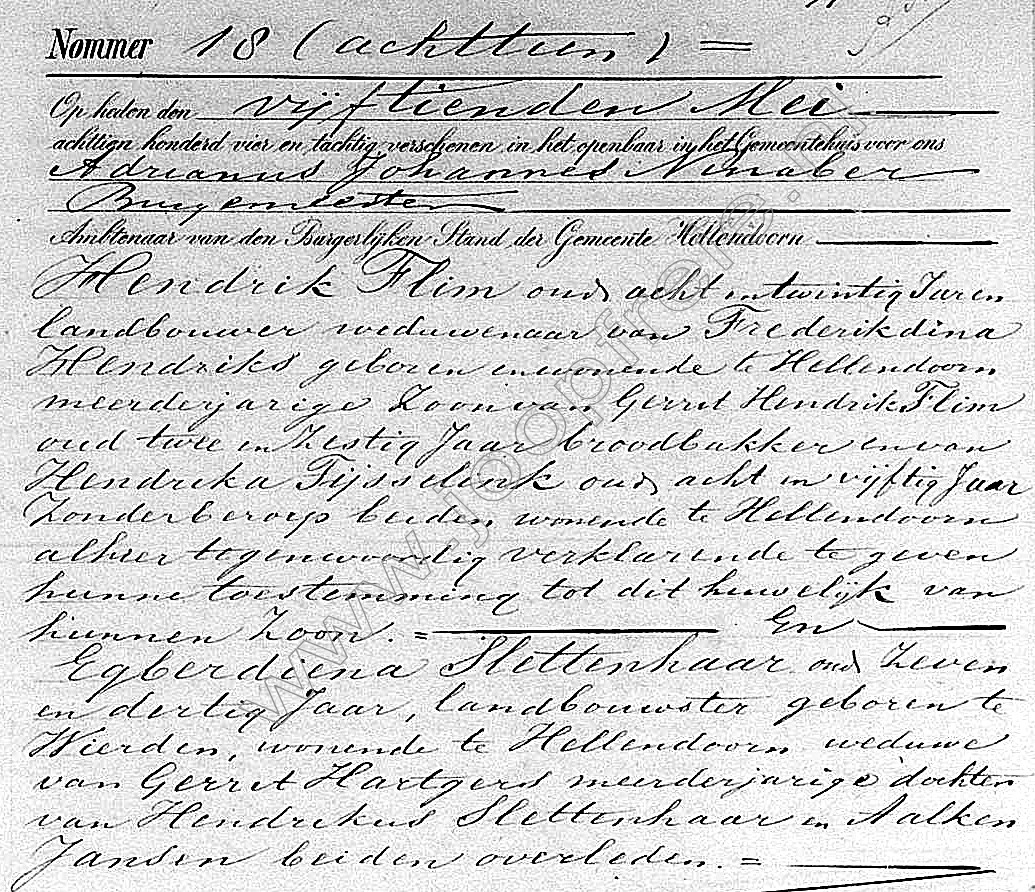 Nommer 18 (achttien) =
Op heden den vijftienden Mei
achttien honderd vier en tachtig verschenen in het openbaar in het Gemeentehuis voor ons
Adrianus Johannes Ninaber
Burgemeester
Ambtenaar van den Burgerlijken Stand der Gemeente Hellendoorn
Hendrik Flim oud acht en twintig Jaren
landbouwer weduwenaar van Frederikdina
Hendriks geboren en wonende te Hellendoorn
meerderjarige Zoon van Gerrit Hendrik Flim
oud twee en Zestig Jaar broodbakker en van
Hendrika Tijsselink oud acht en vijftig Jaar
Zonder beroep beiden wonende te Hellendoorn
alhier tegenwoordig verklarende te geven
hunne toestemming tot dit huwelijk van
hunnen Zoon. = En
Egberdiena Slettenhaar oud Zeven
en dertig Jaar, landbouwster geboren te
Wierden, wonende te Hellendoorn weduwe
van Gerret Hartgers meerderjarige dochter
van Hendrikus Slettenhaar en Aalken
Jansen beiden overleden. =